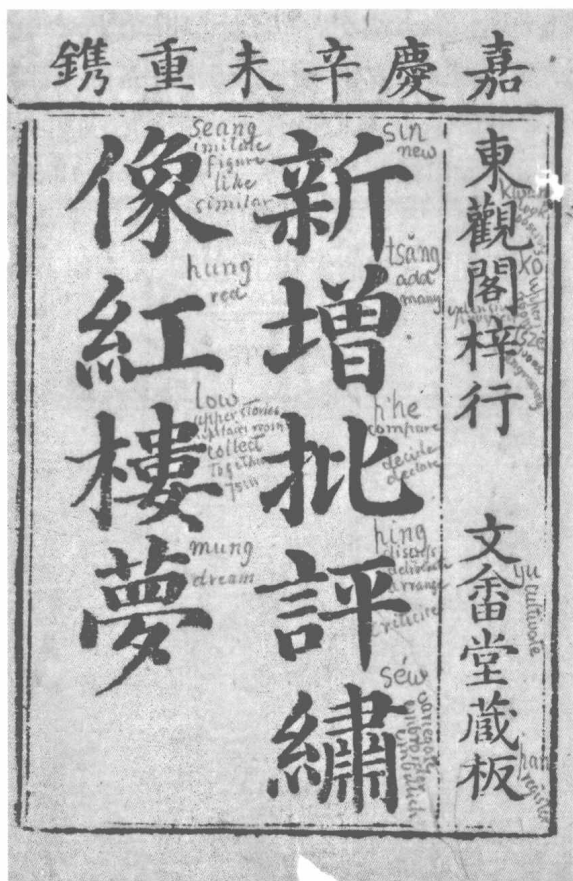 嘉慶辛未重鐫
東觀閣梓行 文畬堂藏板
新增批評繡
像紅樓夢
sin
new
tsăng
add
many
p'he
compare
decide
declare
ping
discuss
deliberate
arrange
criticise
séw
variegate
embroider
embellish
seang
imitate
figure
like
similar
hung
red
low
upper stories
upstairs room
collect
together
mung
dream
yu
cultivate
pan
register